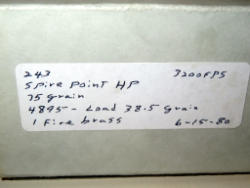 243 3200 FPS
Spire Point HP
75 grain
4895 - Load 38.5 Grain
1 Fire brass 6-15-80